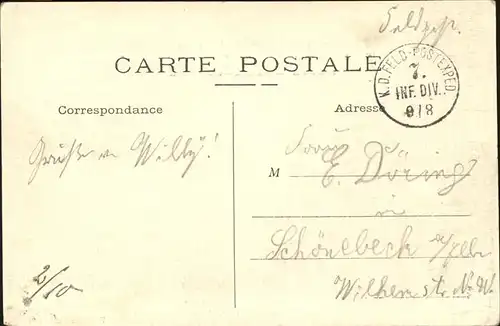 Feldpost.
CARTE POSTALE
K.D. FELD-POSTEXPED.
7.
INF. DIV.
9/8
Correspondance
Adresse
Grüße v. Willy!
M E. Döring
in
Schönebeck a/Elbe
Wilhelmstr. No.
2/10